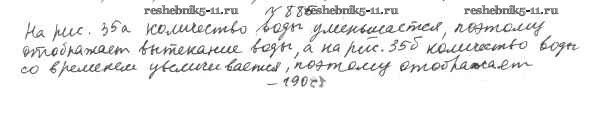 reshebnik5-11.ru № 886 reshebnik5-11.ru
На рис. 35а количество воды уменьшается, поэтому
отображает вытекание воды, а на рис. 35б количество воды
со временем увеличивается, поэтому отображает
reshebnik5-11.ru reshebnik5-11.ru